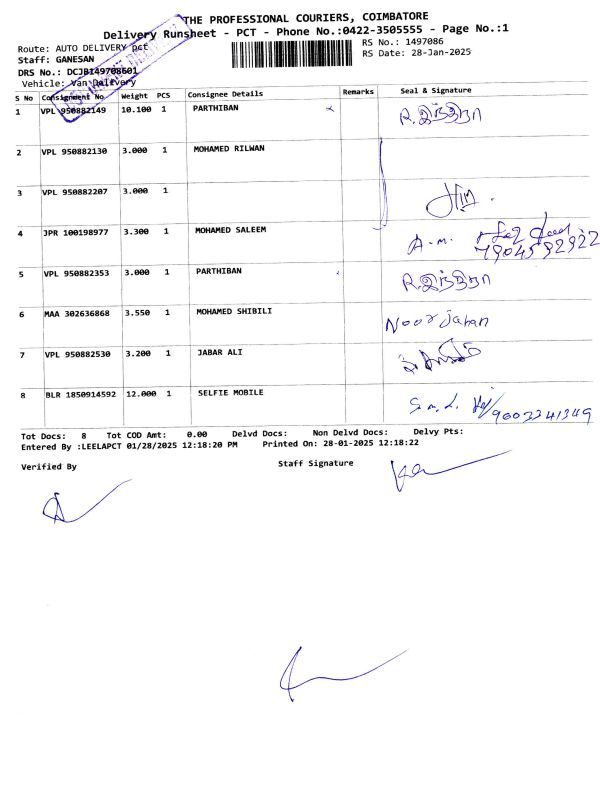 THE PROFESSIONAL COURIERS, COIMBATORE
Delivery Runsheet - PCT - Phone No.:0422-3505555 - Page No.:1
Route: AUTO DELIVERY pct
RS No.: 1497086
Staff: GANESAN
RS Date: 28-Jan-2025
DRS No.: DCJB149708601
Vehicle: Van Delivery
S No Consignment No Weight PCS Consignee Details Remarks Seal & Signature
1 VPL 950882149 10.100 1 PARTHIBAN R.இந்திரா
2 VPL 950882130 3.000 1 MOHAMED RILWAN
3 VPL 950882207 3.000 1
4 JPR 100198977 3.300 1 MOHAMED SALEEM A.m. 7904592922
5 VPL 950882353 3.000 1 PARTHIBAN R.இந்திரா
6 MAA 302636868 3.550 1 MOHAMED SHIBILI Noor Jahan
7 VPL 950882530 3.200 1 JABAR ALI
8 BLR 1850914592 12.000 1 SELFIE MOBILE 9003341349
Tot Docs: 8 Tot COD Amt: 0.00 Delvd Docs: Non Delvd Docs: Delvy Pts:
Entered By :LEELAPCT 01/28/2025 12:18:20 PM Printed On: 28-01-2025 12:18:22
Verified By
Staff Signature